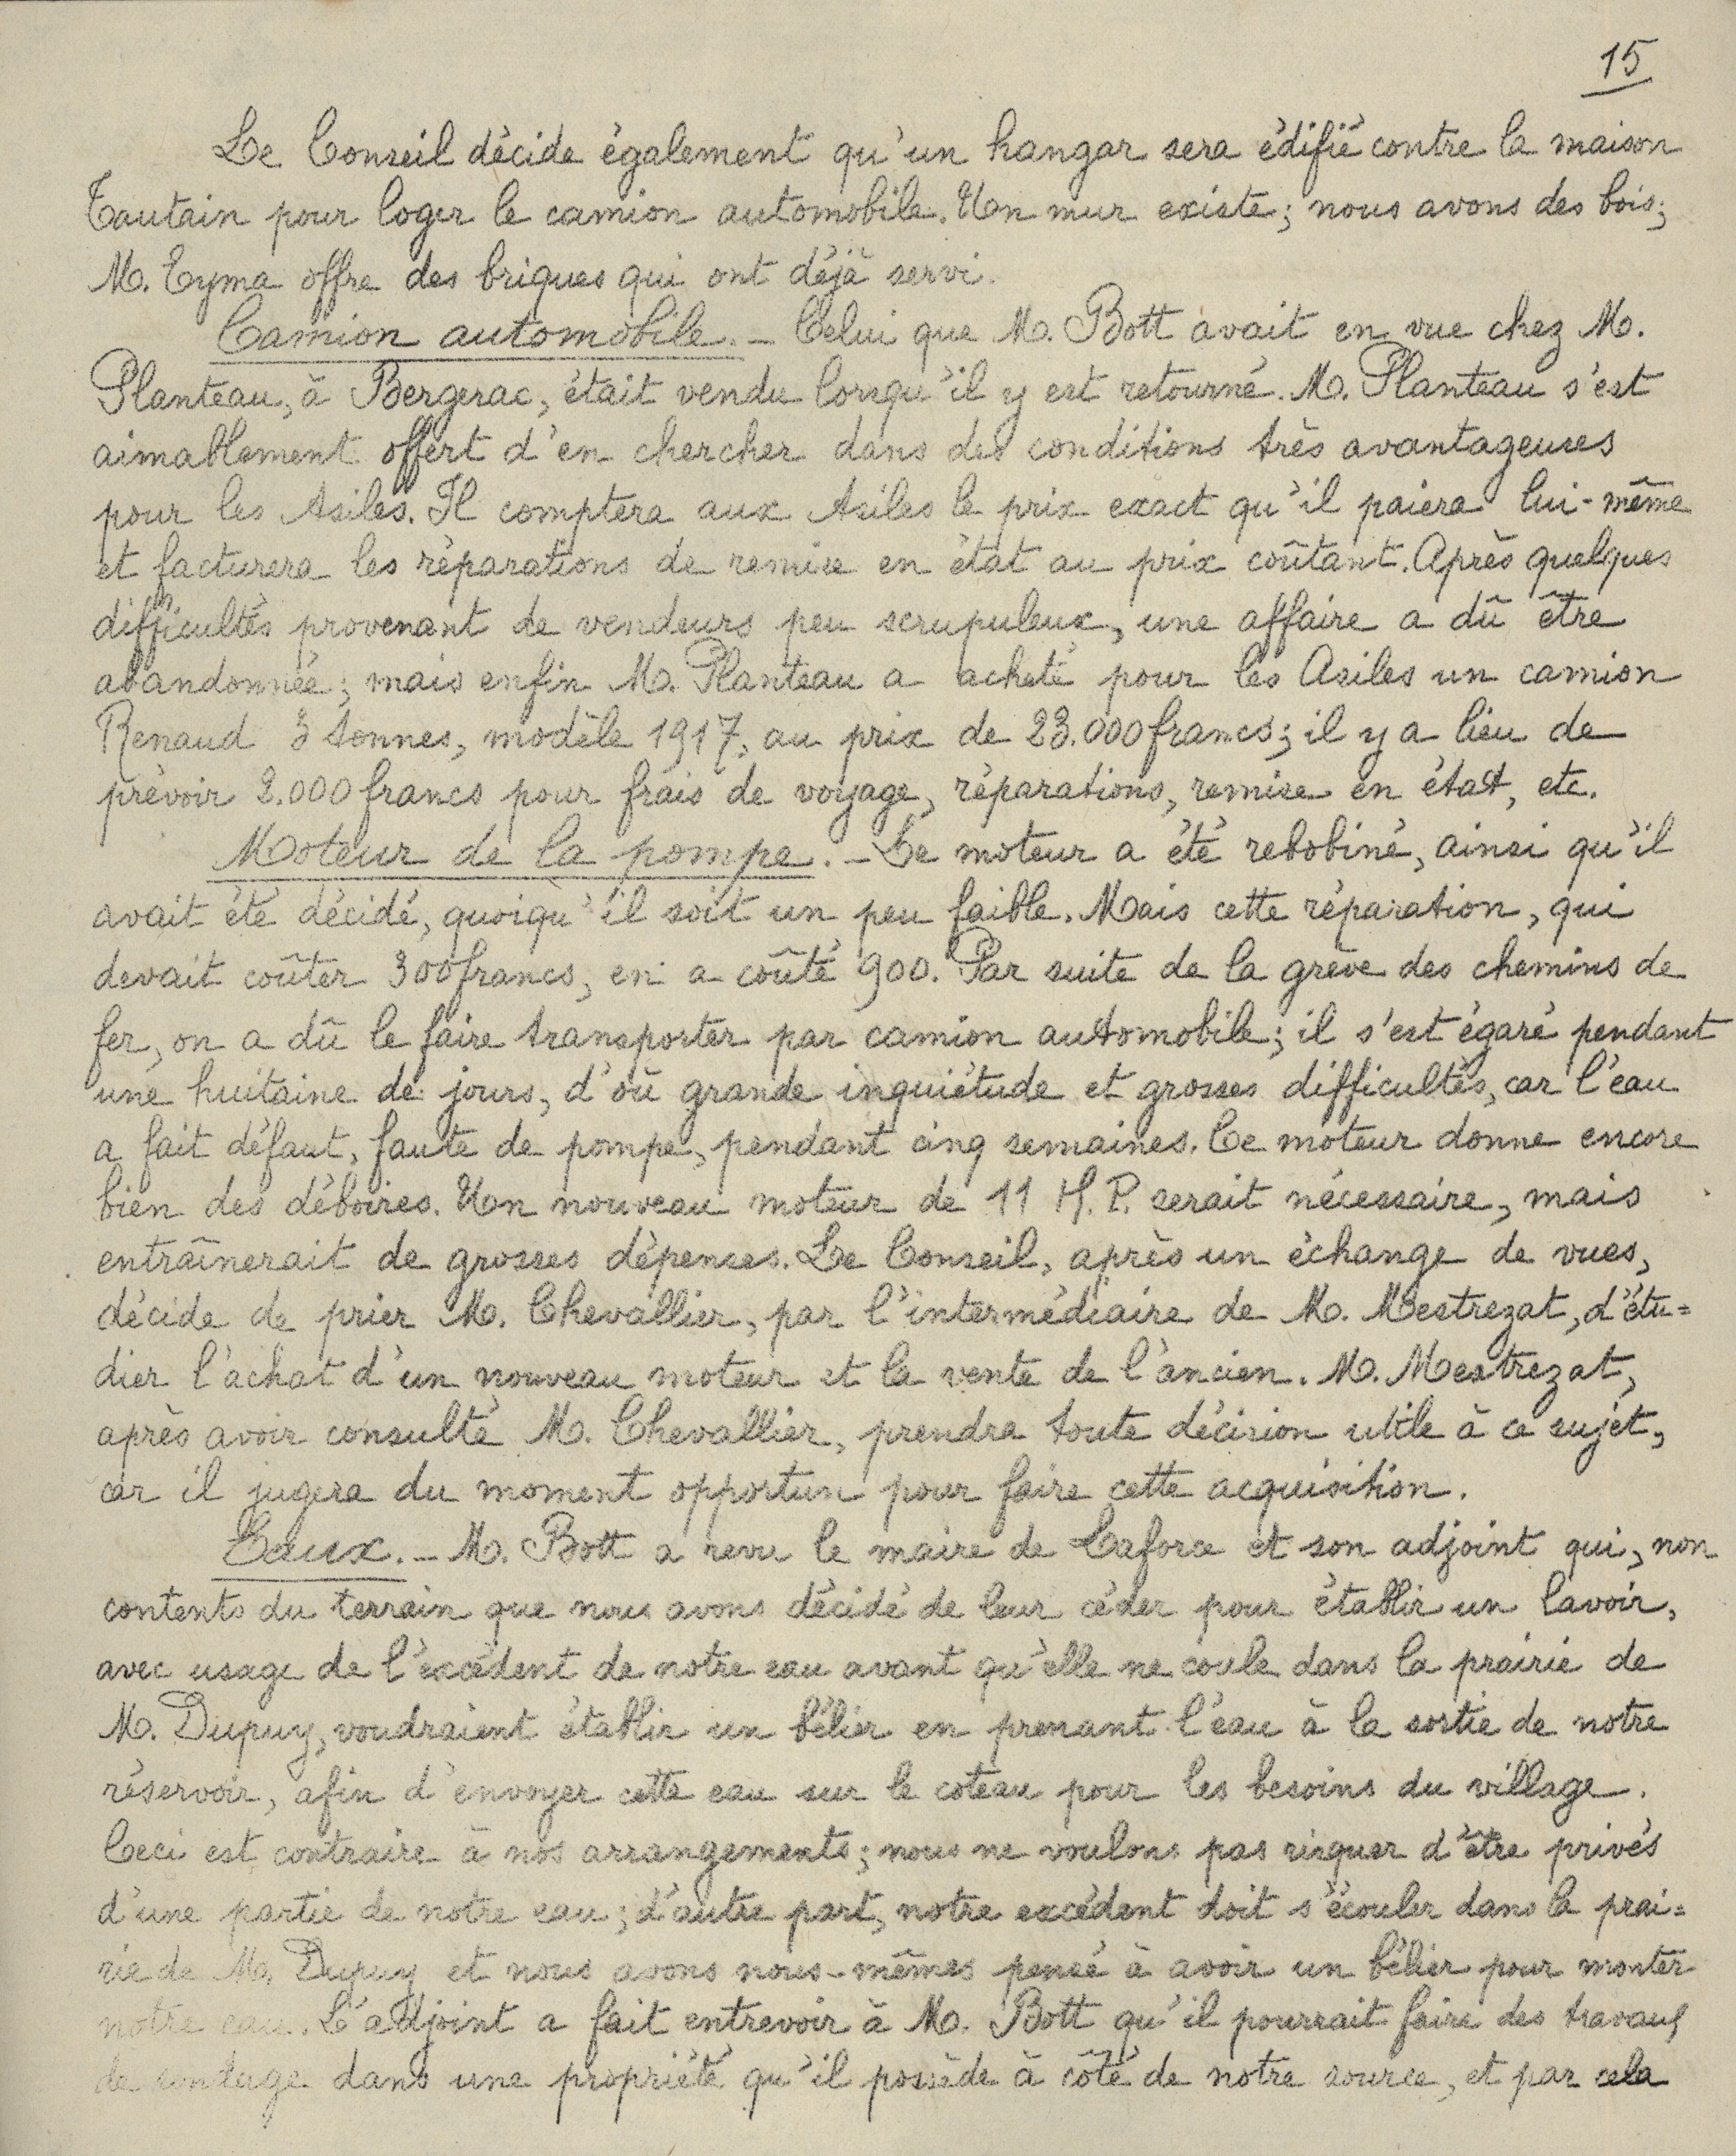 15
Le Conseil décide également qu'un hangar sera édifié contre la maison
Tautain pour loger le camion automobile. Un mur existe; nous avons des bois;
M. Eyma offre des briques qui ont déjà servi.
Camion automobile. _ Celui que M. Bott avait en vue chez M.
Planteau, à Bergerac, était vendu lorsqu'il y est retourné. M. Planteau s'est
aimablement offert d'en chercher dans des conditions très avantageuses
pour les Asiles. Il comptera aux Asiles le prix exact qu'il paiera lui-même
et facturera les réparations de remise en état au prix coûtant. Après quelques
difficultés provenant de vendeurs peu scrupuleux, une affaire a dû être
abandonnée; mais enfin M. Planteau a acheté pour les Asiles un camion
Renaud 3 tonnes, modèle 1917, au prix de 23.000 francs; il y a lieu de
prévoir 2.000 francs pour frais de voyage, réparations, remise en état, etc.
Moteur de la pompe. _ Le moteur a été rebobiné, ainsi qu'il
avait été décidé, quoiqu'il soit un peu faible. Mais cette réparation, qui
devait coûter 300 francs, en a coûté 900. Par suite de la grève des chemins de
fer, on a dû le faire transporter par camion automobile; il s'est égaré pendant
une huitaine de jours, d'où grande inquiétude et grosses difficultés, car l'eau
a fait défaut, faute de pompe, pendant cinq semaines. Ce moteur donne encore
bien des déboires. Un nouveau moteur de 11 H.P. serait nécessaire, mais
entraînerait de grosses dépenses. Le Conseil, après un échange de vues,
décide de prier M. Chevallier, par l'intermédiaire de M. Mestrezat, d'étu=
dier l'achat d'un nouveau moteur et la vente de l'ancien. M. Mestrezat,
après avoir consulté M. Chevallier, prendra toute décision utile à ce sujet,
car il jugera du moment opportun pour faire cette acquisition.
Eaux. _ M. Bott a revu le maire de Laforce et son adjoint qui, non
contents du terrain que nous avons décidé de leur céder pour établir un lavoir,
avec usage de l'excédent de notre eau avant qu'elle ne coule dans la prairie de
M. Dupuy, voudraient établir un bélier en prenant l'eau à la sortie de notre
réservoir, afin d'envoyer cette eau sur le coteau pour les besoins du village.
Ceci est contraire à nos arrangements; nous ne voulons pas risquer d'être privés
d'une partie de notre eau; d'autre part, notre excédent doit s'écouler dans la prai=
rie de M. Dupuy et nous avons nous-mêmes pensé à avoir un bélier pour monter
notre eau. L'adjoint a fait entrevoir à M. Bott qu'il pourrait faire des travaux
de dans une propriété qu'il possède à côté de notre source, et par cela